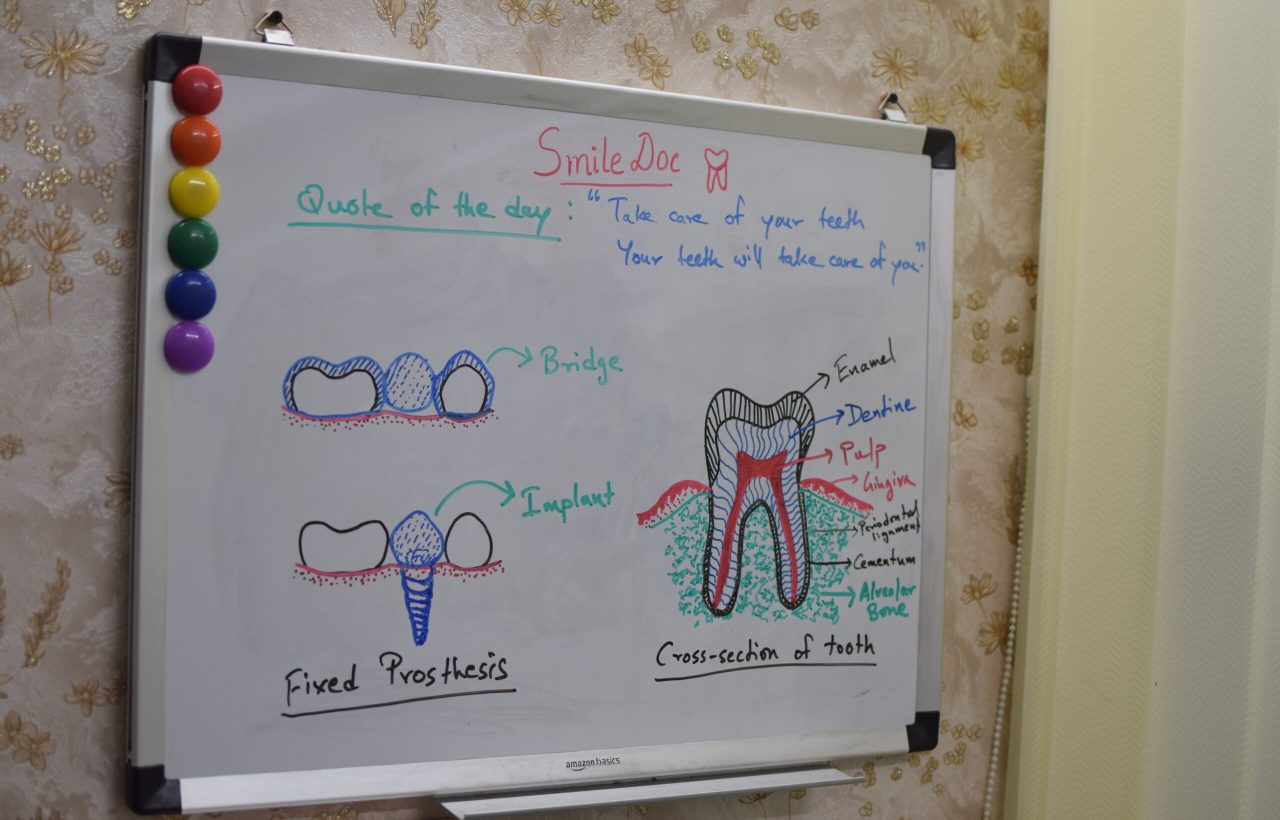 Smile Doc
Quote of the day : "Take care of your teeth
Your teeth will take care of you."
Bridge
Implant
Fixed Prosthesis
Enamel
Dentine
Pulp
Gingiva
Periodontal
ligament
Cementum
Alveolar
Bone
Cross-section of tooth
amazon basics